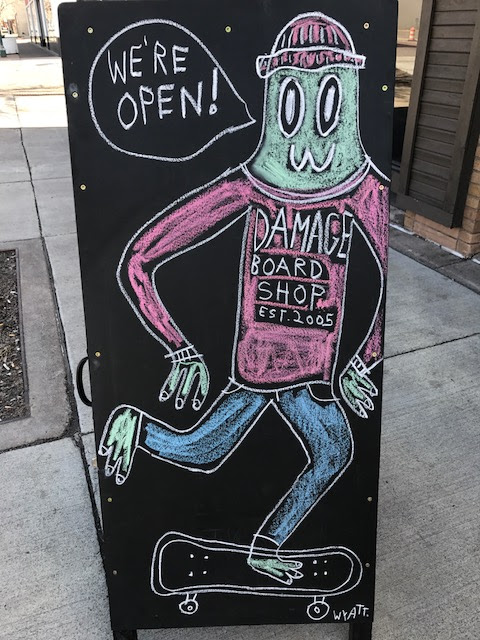 WE'RE
OPEN!
DAMAGE
BOARD
SHOP
EST. 2005
WYATT.